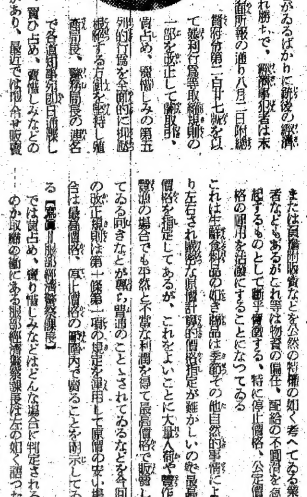 がゐるばかりに銃後の經濟
れ勝ちで、經濟事犯者は末
面所報の通り八月二日附總
督府令第二百十七號を以
て暴利行爲等取締規則の
一部を改正して闇取引、
買占め、賣惜しみの第五
列的行爲を全面的に抑壓
根絶する方針を堅持し殖
產局長、警務局長の連名
で各道知事宛即日通牒し
買ひ占め、賣惜しみなどの
あり、最近では抱合せ販賣
または負擔附販賣などを公然の特權の如く考へてゐる
者などもあるがこれ等は物資の偏在、配給の不圓滑を惹
起するものとして斷乎膺懲する、特に停止價格、公定價
格の運用を活潑にすることになつてゐる
これは生鮮食料品の如き商品は季節その他自然的事情によ
り左右され嚴密な原價計算や價格指定が難かしいので最高
價格を指定してあるが、これをよいことに大量入荷や豐作
の場合でも平然と不當な利潤を得て最高價格で販賣し
てゐる向きなどが專ら普通のこととされてゐるなどを今回
の改正規則は第一條第一項の規定を運用して原價の安い場
合は最高價格、停止價格の範圍內で賣ることを明示してゐ
る【寫眞＝服部經濟警察課長】
では買占め、賣り惜しみなどはどんな場合に判定される
のか取締の衝にある服部經濟警察課長は左の如く語つた